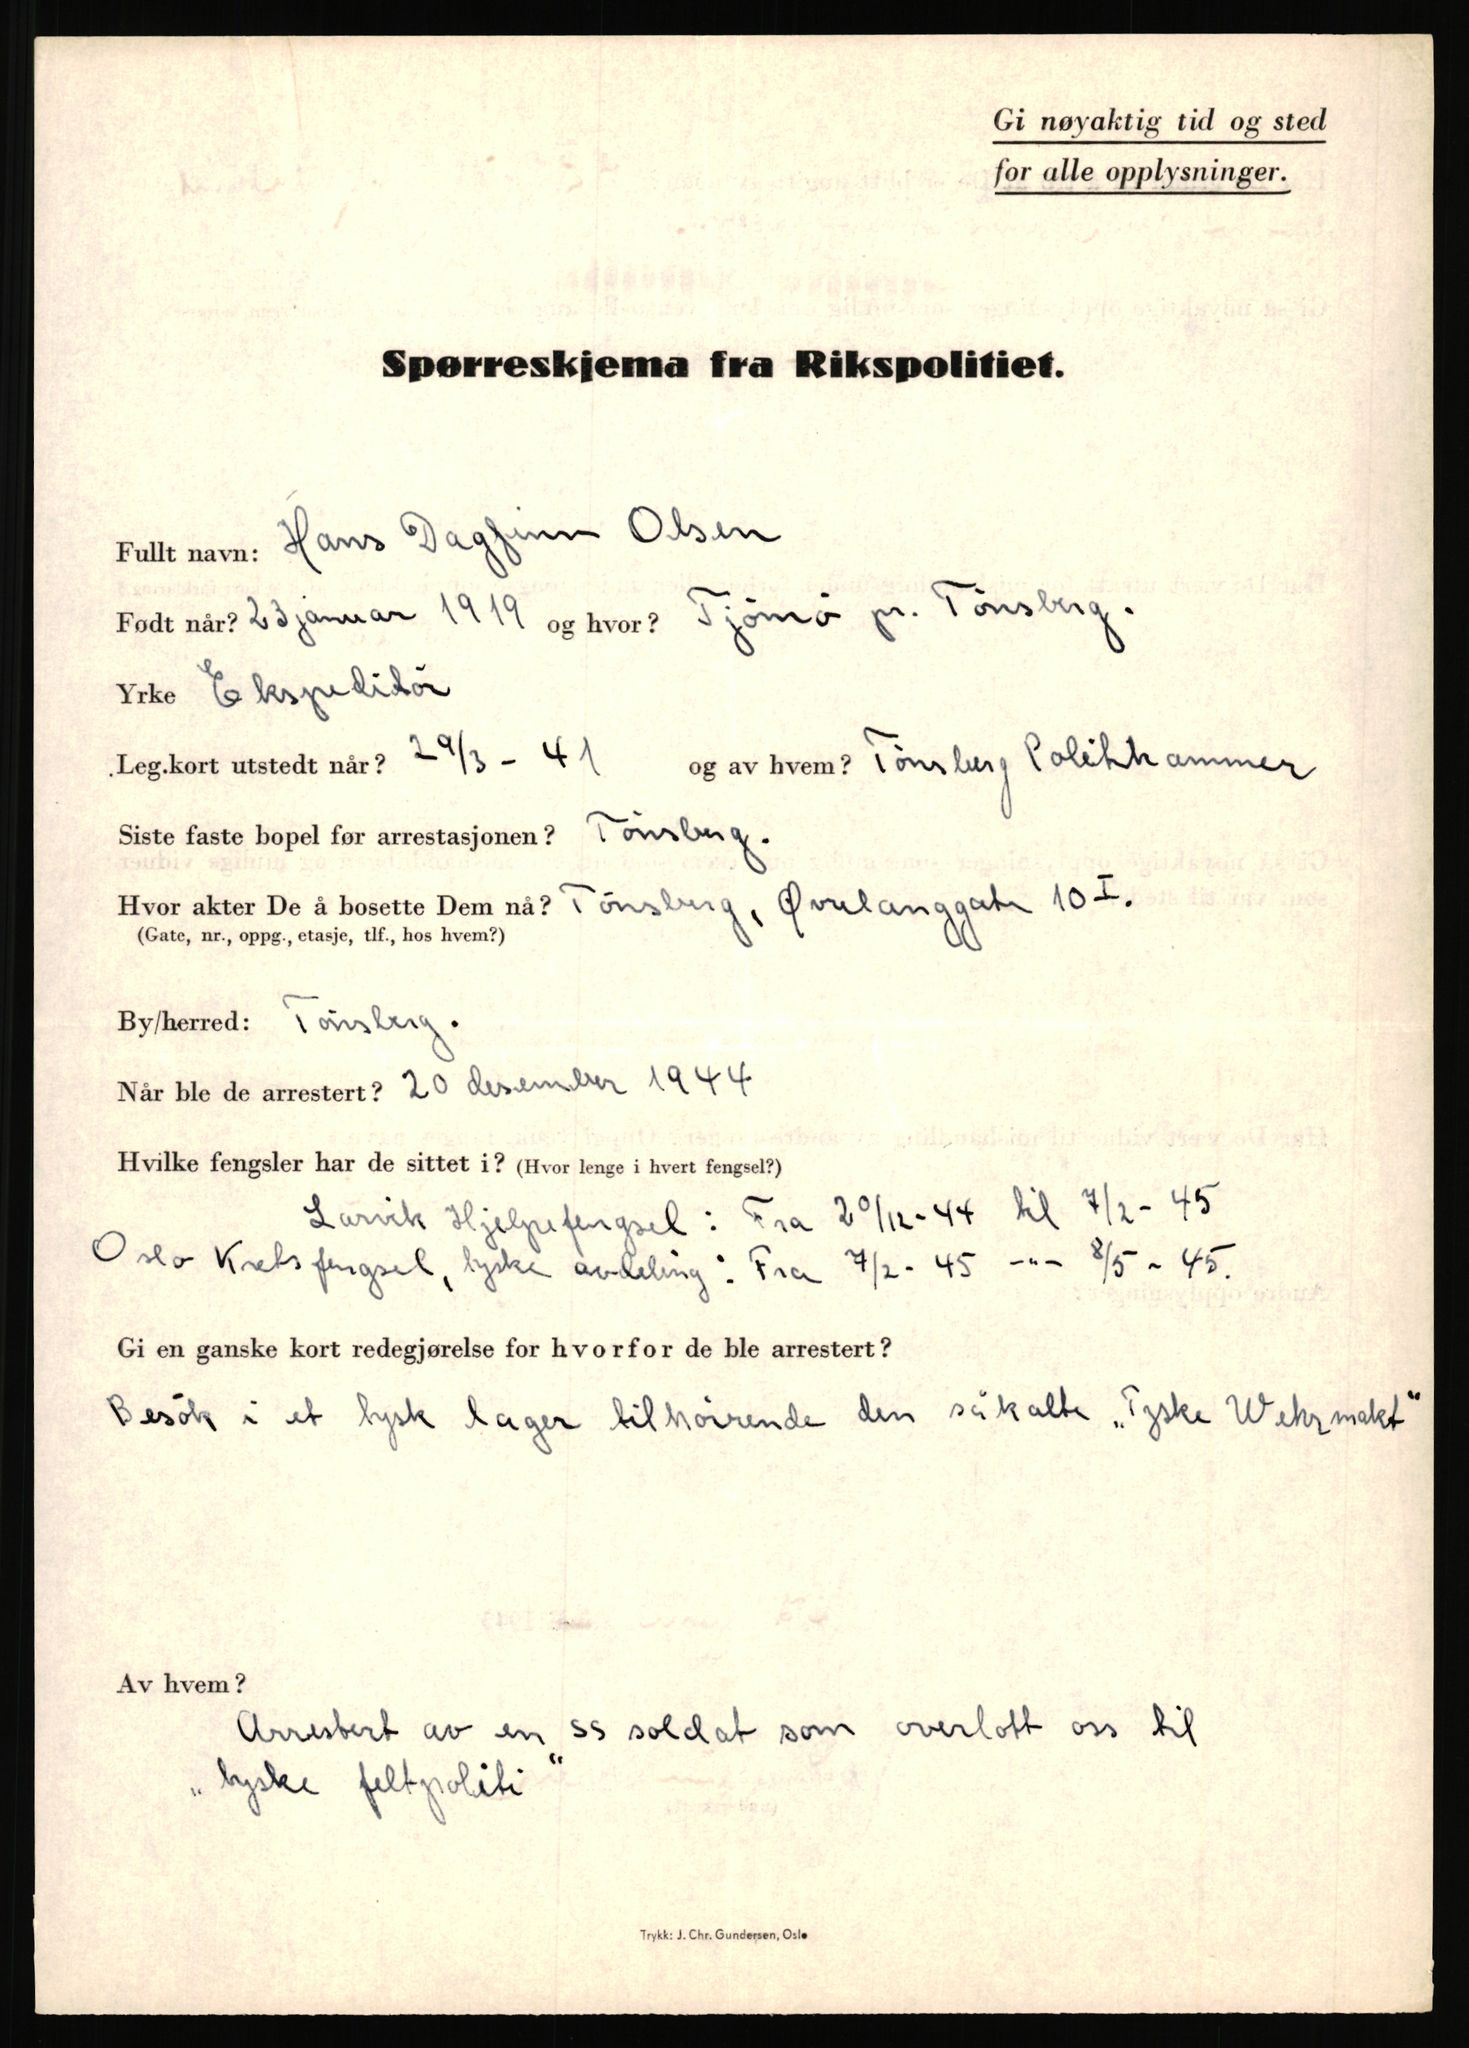 Gi nøyaktig tid og sted
for alle opplysninger.
Spørreskjema fra Rikspolitiet.
Fullt navn: Hans Dagfinn Olsen
Født når? 23 januar 1919 og hvor? Tjömö pr. Tönsberg.
Yrke Ekspeditör
Leg.kort utstedt når? 29/3 - 41 og av hvem? Tönsberg Politikammer
Siste faste bopel før arrestasjonen? Tönsberg.
Hvor akter De å bosette Dem nå? Tönsberg, Øvrelanggate 10 I.
(Gate, nr., oppg., etasje, tlf., hos hvem?)
By/herred: Tönsberg.
Når ble de arrestert? 20 desember 1944
Hvilke fengsler har de sittet i? (Hvor lenge i hvert fengsel?)
Larvik Hjelpefengsel: Fra 20/12-44 til 7/2-45
Oslo Kretsfengsel, tyske avdeling: Fra 7/2-45 -"- 8/5-45.
Gi en ganske kort redegjørelse for hvorfor de ble arrestert?
Besök i et tysk lager tilhörende den såkalte „Tyske Wehrmakt“
Av hvem?
Arrestert av en SS soldat som overlott oss til
„tyske feltpoliti“
Trykk: J. Chr. Gundersen, Oslo